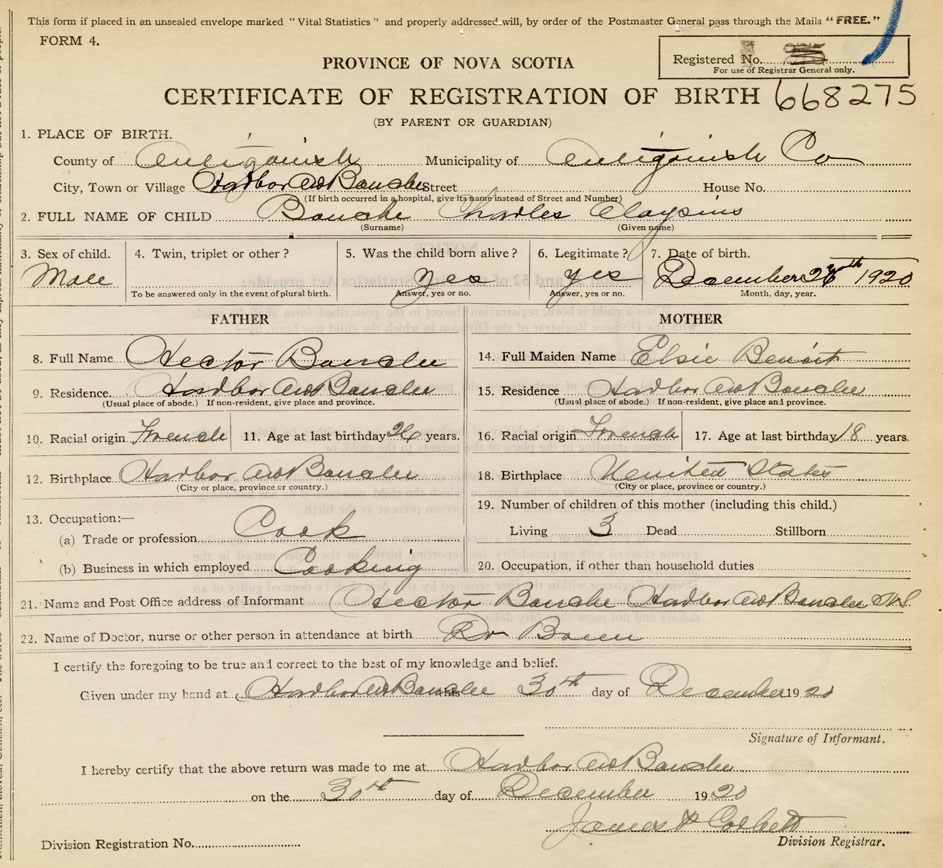 This form if placed in an unsealed envelope marked "Vital Statistics" and properly addressed will, by order of the Postmaster General pass through the Mails "FREE."
FORM 4.
Registered No.
For use of Registrar General only.
PROVINCE OF NOVA SCOTIA
CERTIFICATE OF REGISTRATION OF BIRTH 668275
(BY PARENT OR GUARDIAN)
1. PLACE OF BIRTH.
County of Antigonish Municipality of Antigonish Co
City, Town or Village Harbor au Bouche Street House No.
(If birth occurred in a hospital, give its name instead of Street and Number)
2. FULL NAME OF CHILD Charles
(Surname) (Given name)
3. Sex of child. 4. Twin, triplet or other? 5. Was the child born alive? 6. Legitimate? 7. Date of birth.
Male yes yes December 1920
To be answered only in the event of plural birth. Answer, yes or no. Answer, yes or no. Month, day, year.
FATHER MOTHER
8. Full Name Hector 14. Full Maiden Name Elsie Benoit
9. Residence. Harbor au Bouche 15. Residence Harbor au Bouche
(Usual place of abode.) If non-resident, give place and province. (Usual place of abode.) If non-resident, give place and province.
10. Racial origin French 11. Age at last birthday years. 16. Racial origin French 17. Age at last birthday 18 years.
12. Birthplace Harbor au Bouche 18. Birthplace United States
(City or place, province or country.) (City or place, province or country.)
13. Occupation:— 19. Number of children of this mother (including this child.)
(a) Trade or profession Cook Living 3 Dead Stillborn
(b) Business in which employed Cooking 20. Occupation, if other than household duties
21. Name and Post Office address of Informant Hector Harbor au Bouche N.S.
22. Name of Doctor, nurse or other person in attendance at birth Dr
I certify the foregoing to be true and correct to the best of my knowledge and belief.
Given under my hand at Harbor au Bouche this 30th day of December 1920
Signature of Informant.
I hereby certify that the above return was made to me at Harbor au Bouche
on the 30th day of December 1920
James P Corbett
Division Registration No. Division Registrar.